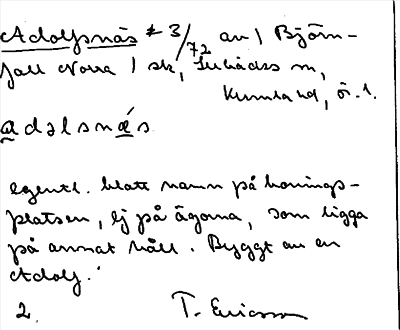 Adolfsnäs # 3/72 av / Björn-
fall Norra / sk, Suhådss m,
Kumla hd, ör. l.
adəlsnǽs
egentl. blott namn på bonings-
platsen, ej på ägorna, som ligga
på annat håll. Byggt av en
Adolf.
2. T. Ericsson